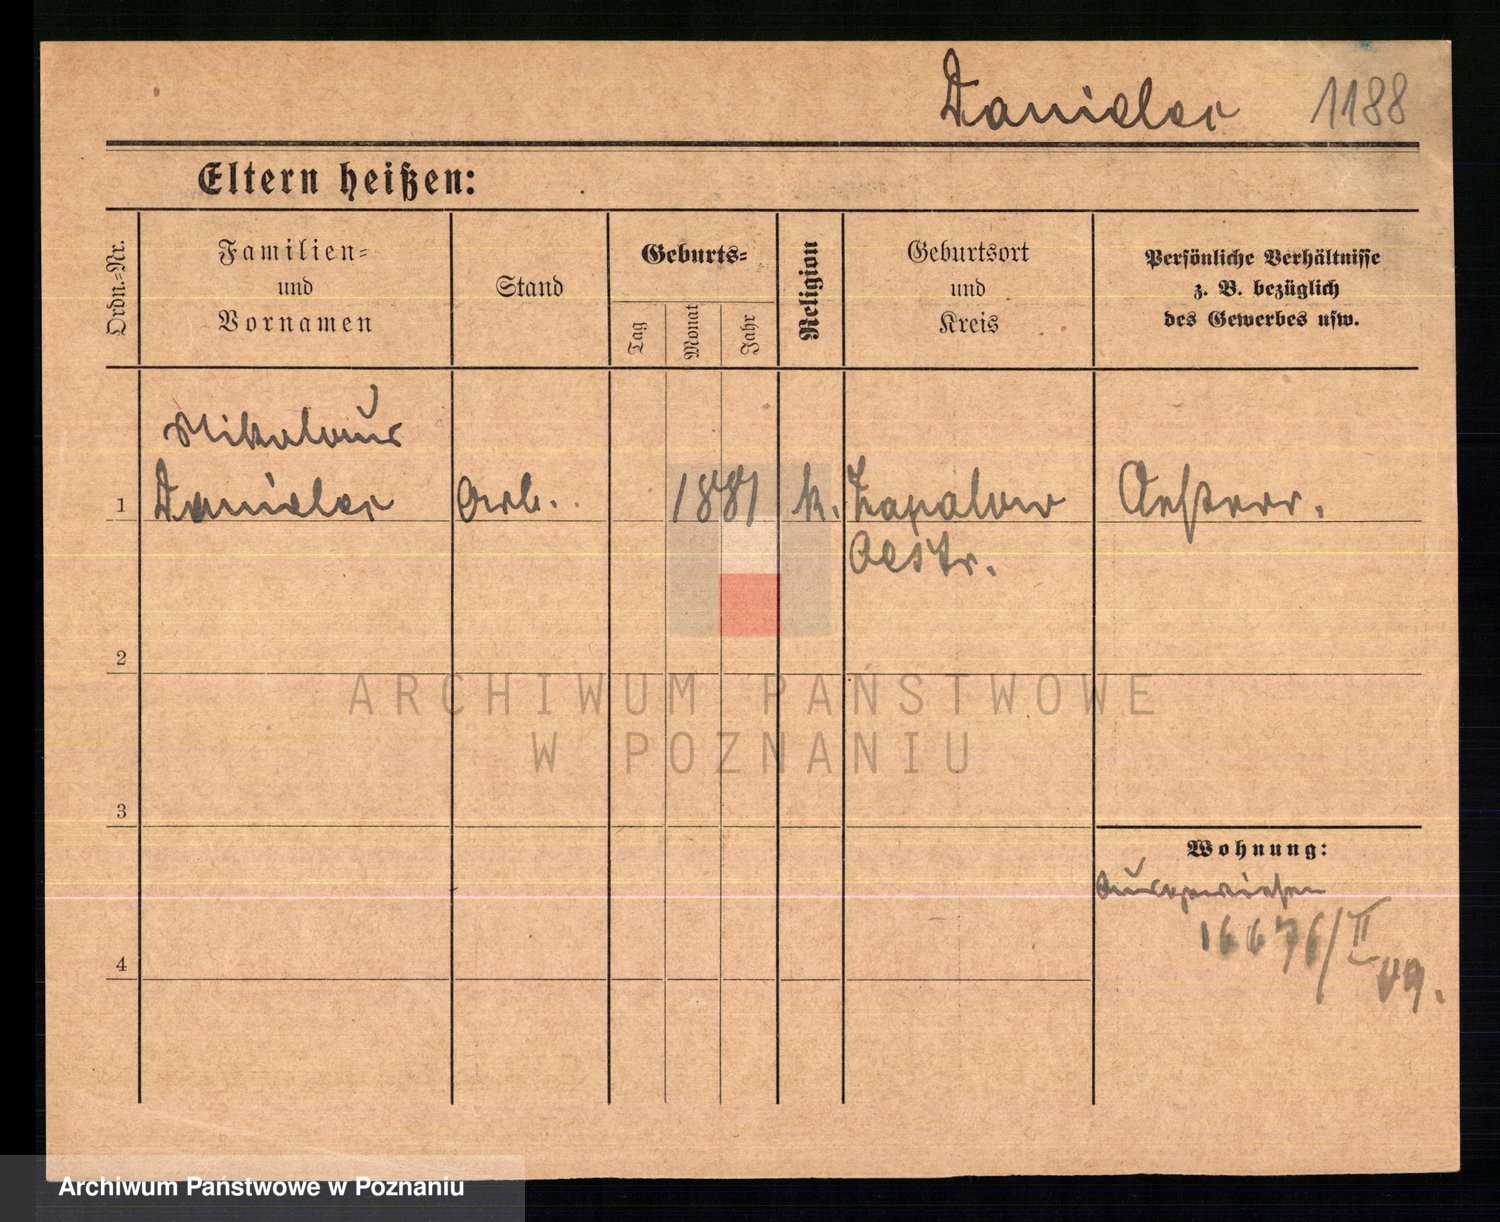 Danieler 1188
Eltern heißen:
Ordn.-Nr.
Familien-
und
Vornamen
Stand
Geburts-
Tag
Monat
Jahr
Religion
Geburtsort
und
Kreis
Persönliche Verhältnisse
z. B. bezüglich
des Gewerbes usw.
1
Danieler Arb. 1881 k. Zapalow Oesterr.
Oestr.
2
ARCHIWUM PAŃSTWOWE
W POZNANIU
3
Wohnung:
Ausgewiesen
16676/II
09.
4
Archiwum Państwowe w Poznaniu